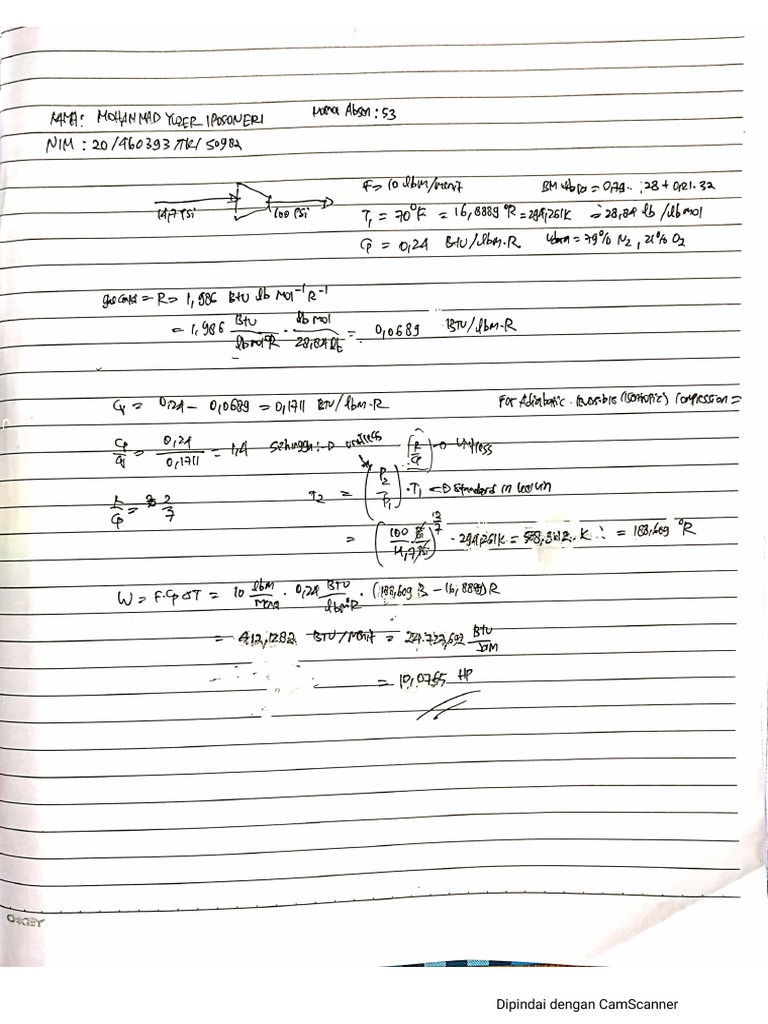 NAMA: MOHAMMAD YUZER IPOSONERI Nomor Absen : 53
NIM : 20/460393/TK/50982
14,7 Psi 100 Psi
F = 10 lbm/menit BM udara = 0,79 . 28 + 0,21 . 32
T₁ = 70°F = 16,8889 °R = 294,261K = 28,84 lb/lbmol
Cp = 0,24 BTU/lbm.R udara = 79% N₂, 21% O₂
gas const = R = 1,986 Btu lb mol⁻¹ R⁻¹
= 1,986 Btu/lbmol°R . lb mol/28,84 lb = 0,0689 BTU/lbm.R
Cv = 0,24 - 0,0689 = 0,1711 BTU/lbm.R For Adiabatic reversible (isentropic) Compression =
Cp/Cv = 0,24/0,1711 = 1,4 Sehingga : → unitless (R/Cp) → Unitless
R/Cp = 2/7 T₂ = (P₂/P₁) . T₁ Standard in
= (100/14,7)^2/7 . 294,261K = K = 188,609 °R
W = F.Cp ΔT = 10 lbm/ . 0,24 BTU/lbm°R . (188,609 - 16,8889) R
= 412,1282 BTU/menit = 24.727,692 Btu/Jam
= HP
OKEY
Dipindai dengan CamScanner